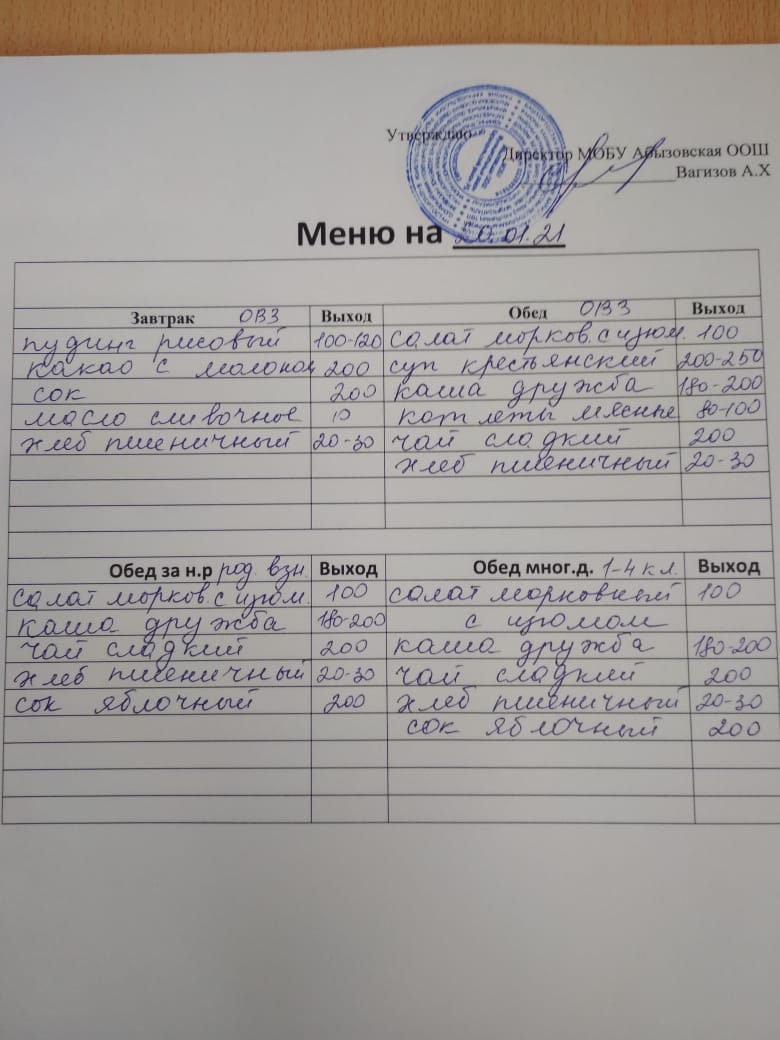 Утверждаю
Директор МОБУ Абызовская ООШ
Вагизов А.Х
Меню на 20.01.21
Завтрак ОВЗ Выход Обед ОВЗ Выход
пудинг рисовый 100-120 салат морков. с изюм. 100
какао с молоком 200 суп крестьянский 200-250
сок 200 каша дружба 180-200
масло сливочное 10 котлеты мясные 80-100
хлеб пшеничный 20-30 чай сладкий 200
хлеб пшеничный 20-30
Обед за н.р род. взн. Выход Обед мног.д. 1-4 кл. Выход
салат морков. с изюм. 100 салат морковный 100
каша дружба 180-200 с изюмом
чай сладкий 200 каша дружба 180-200
хлеб пшеничный 20-30 чай сладкий 200
сок яблочный 200 хлеб пшеничный 20-30
сок яблочный 200